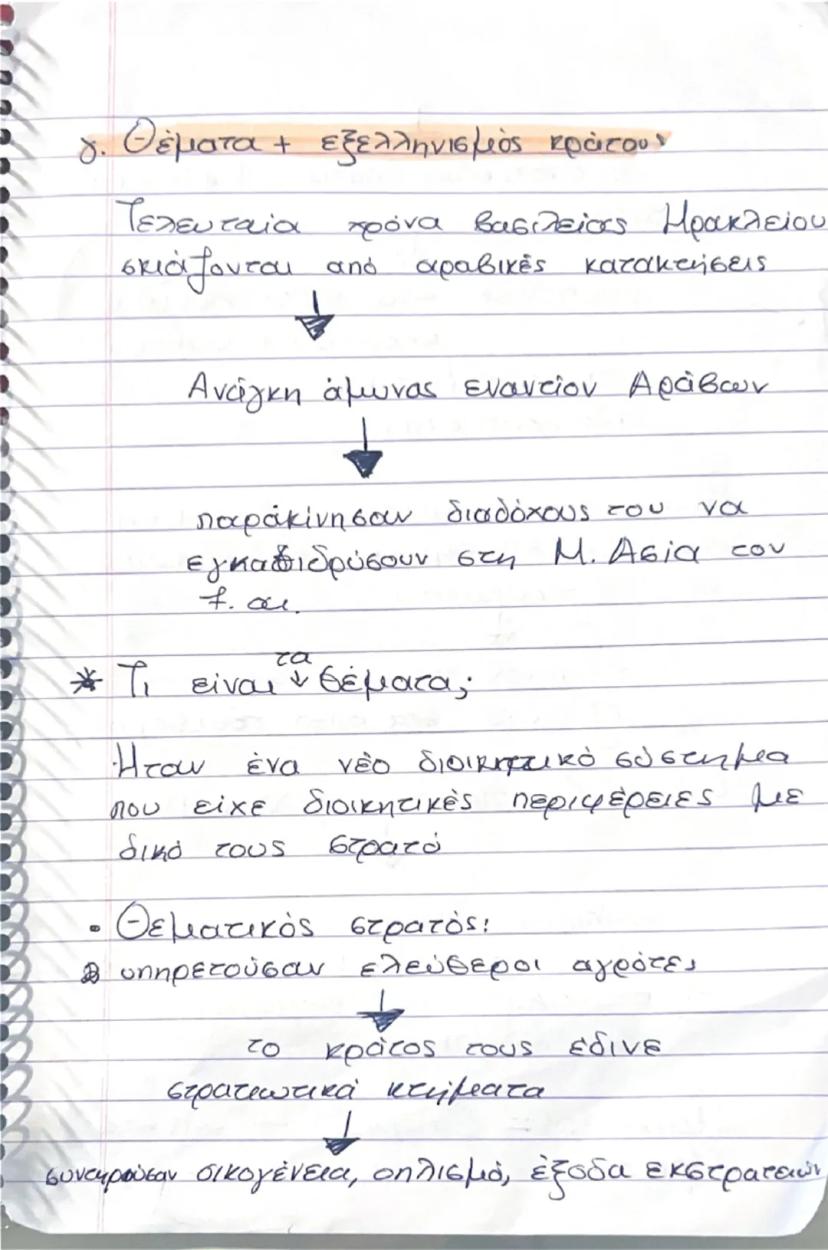 γ. Θέματα + εξελληνισμός κράτους
Τελευταία χρόνα βασιλείας Ηρακλείου
σκιάζονται από αραβικές κατακτήσεις
Ανάγκη άμυνας εναντίον Αράβων
παράκίνησαν διαδόχους του να
εγκαθιδρύσουν στη Μ. Ασία τον
7. αι.
* Τι είναι τα θέματα;
Ήταν ένα νέο διοικητικό σύστημα
που είχε διοικητικές περιφέρειες με
δικό τους στρατό
• Θεματικός στρατός:
υπηρετούσαν ελεύθεροι αγρότες
το κράτος τους έδινε
στρατιωτικά κτήματα
συντηρούσαν οικογένεια, οπλισμό, έξοδα εκστρατειών